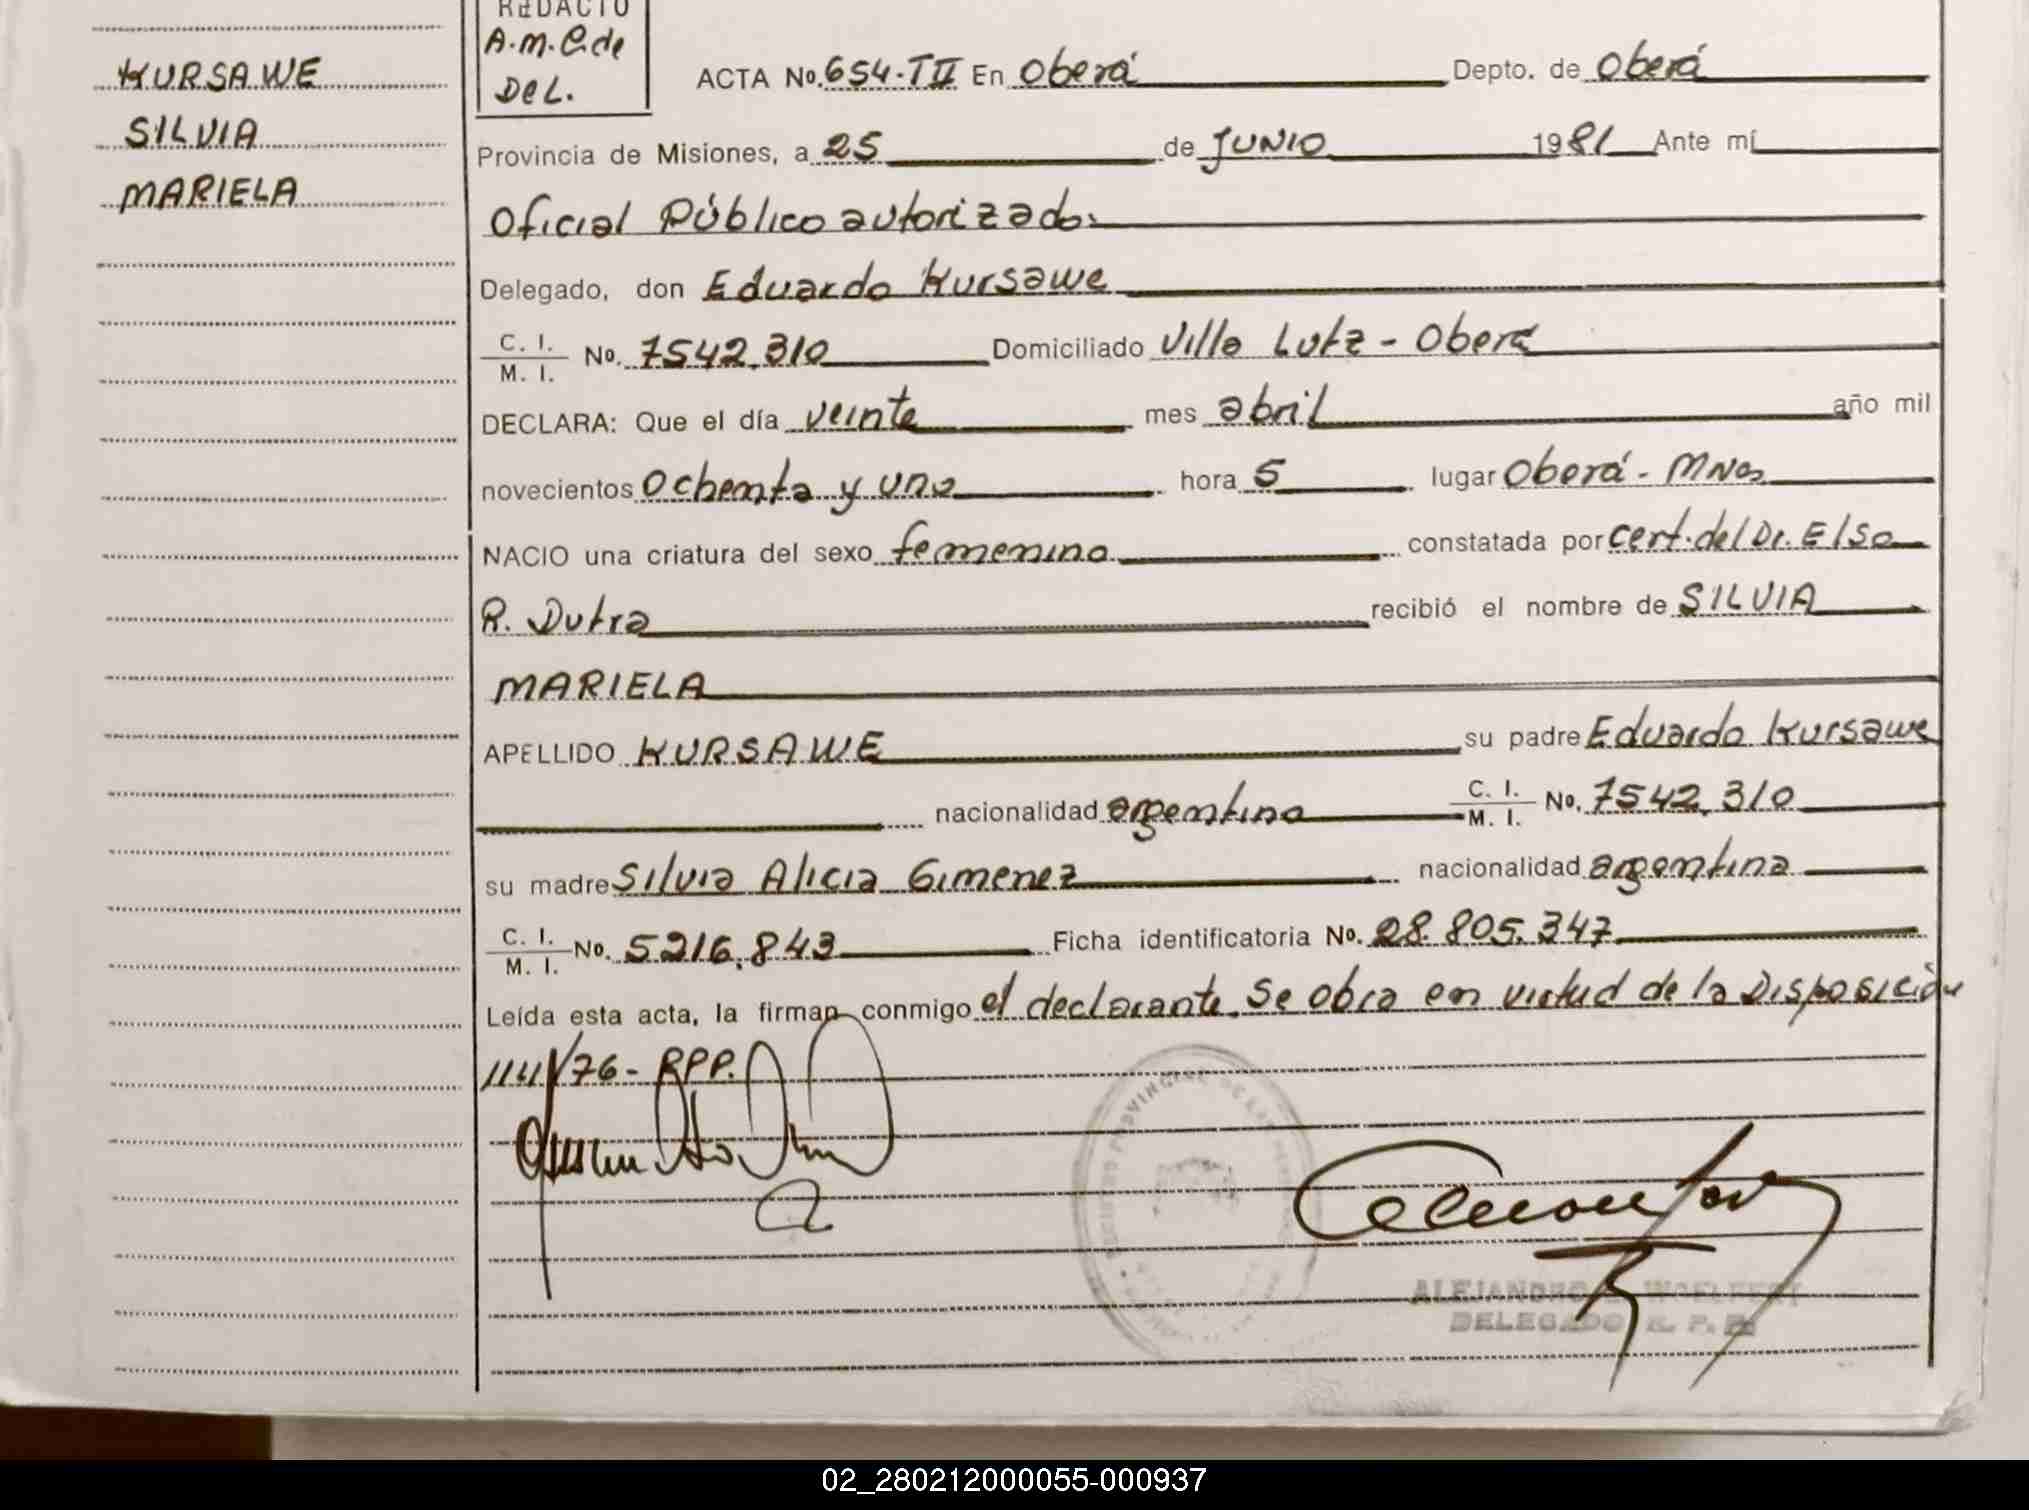 REDACTO
A.M.C. de
Del.
KURSAWE
SILVIA
MARIELA
ACTA No. 654-TII En Oberá Depto. de Oberá
Provincia de Misiones, a 25 de JUNIO 1981 Ante mí
Oficial Público autorizado:
Delegado, don Eduardo Kursawe
C. I.
M. I. No. 7542.310 Domiciliado Villa Lutz - Oberá
DECLARA: Que el día veinte mes abril año mil
novecientos ochenta y uno hora 5 lugar Oberá - MNes
NACIO una criatura del sexo femenino constatada por cert. del Dr. Elso
R. Dutra recibió el nombre de SILVIA
MARIELA
APELLIDO KURSAWE su padre Eduardo Kursawe
nacionalidad argentina C. I.
M. I. No. 7542.310
su madre Silvia Alicia Gimenez nacionalidad argentina
C. I.
M. I. No. 5216.843 Ficha identificatoria No. 28.805.347
Leída esta acta, la firman conmigo el declarante. Se obra en virtud de la Disposición
1141/76 - RPP.
ALEJANDRO WOELFERT
DELEGADO R. P. P.
02_280212000055-000937